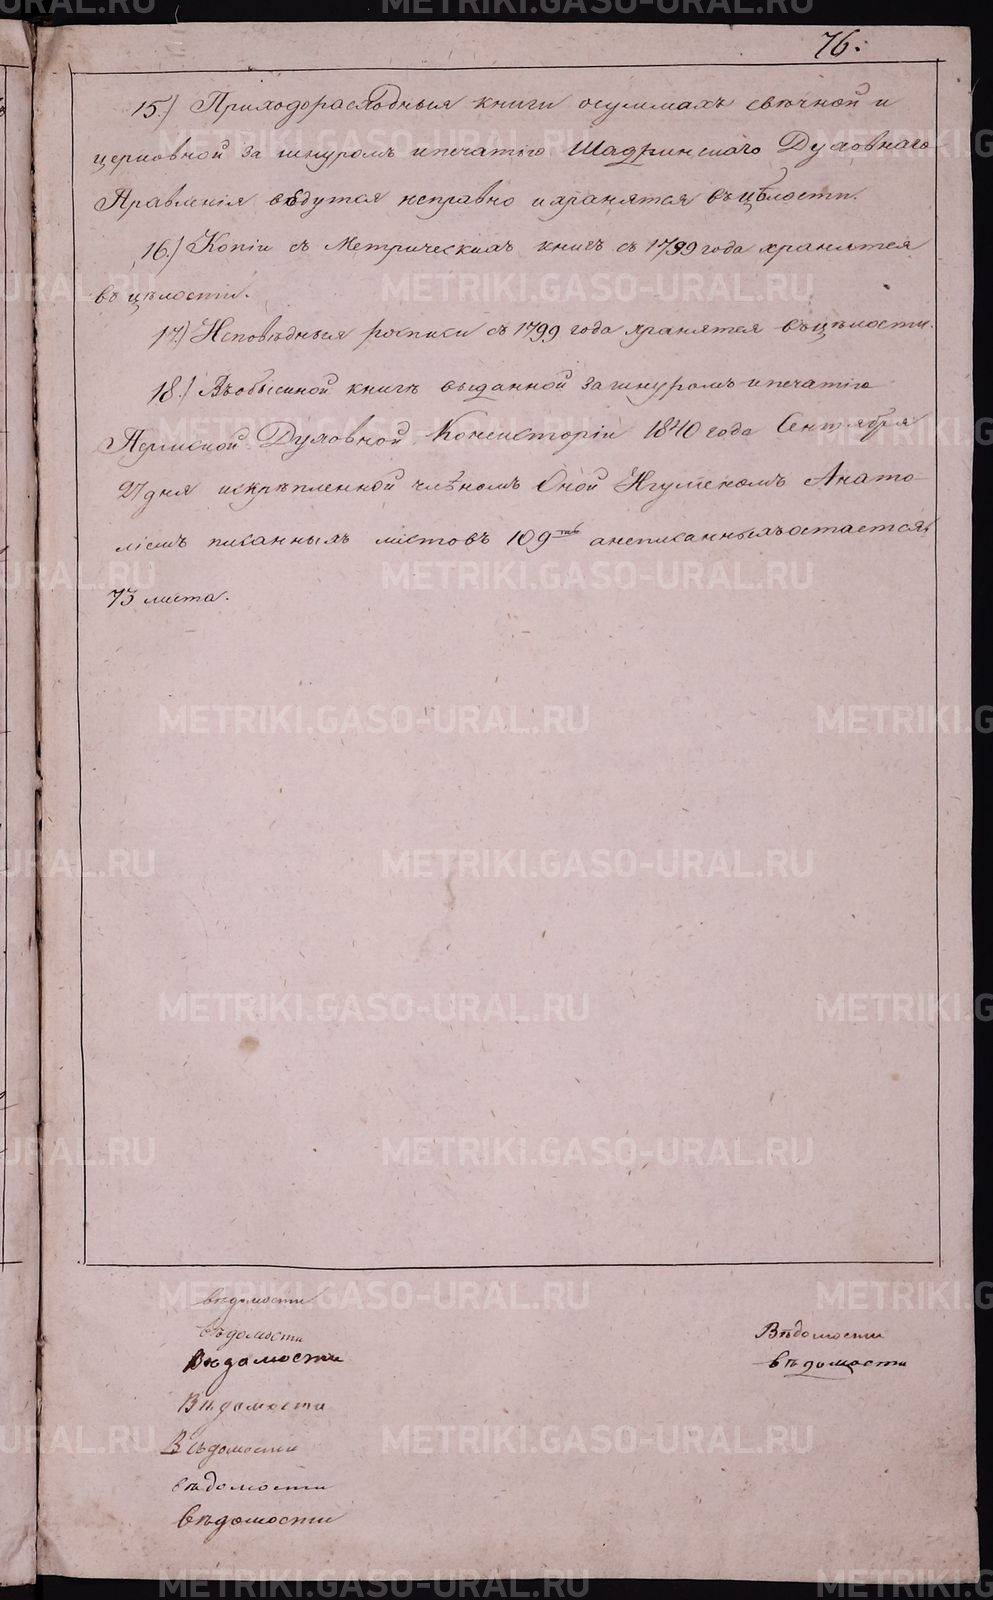 76.
15.) Приходорасходныя книги осуммахъ свѣчной и
церковной за шнуромъ ипечатію Шадринскаго Духовнаго
Правленія ведутся исправно ихранятся въцѣлости.
16.) Копіи съ Метрическихъ книгъ съ 1799 года хранятся
въ цѣлости.
17.) Исповѣдныя росписи съ 1799 года хранятся въцѣлости.
18.) Въобыскной книгѣ выданной зашнуромъ ипечатію
Пермской Духовной Консисторіи 1840 года Сентября
27 дня искрѣпленной членомъ Оной Игуменомъ Анато-
ліемъ писанныхъ листовъ 109ть анеписанныхъостается
73 листа.
вѣдомости
вѣдомости
Вѣдомости
Вѣдомости
Вѣдомости
вѣдомости
вѣдомости
Вѣдомости
вѣдомости
METRIKI.GASO-URAL.RU